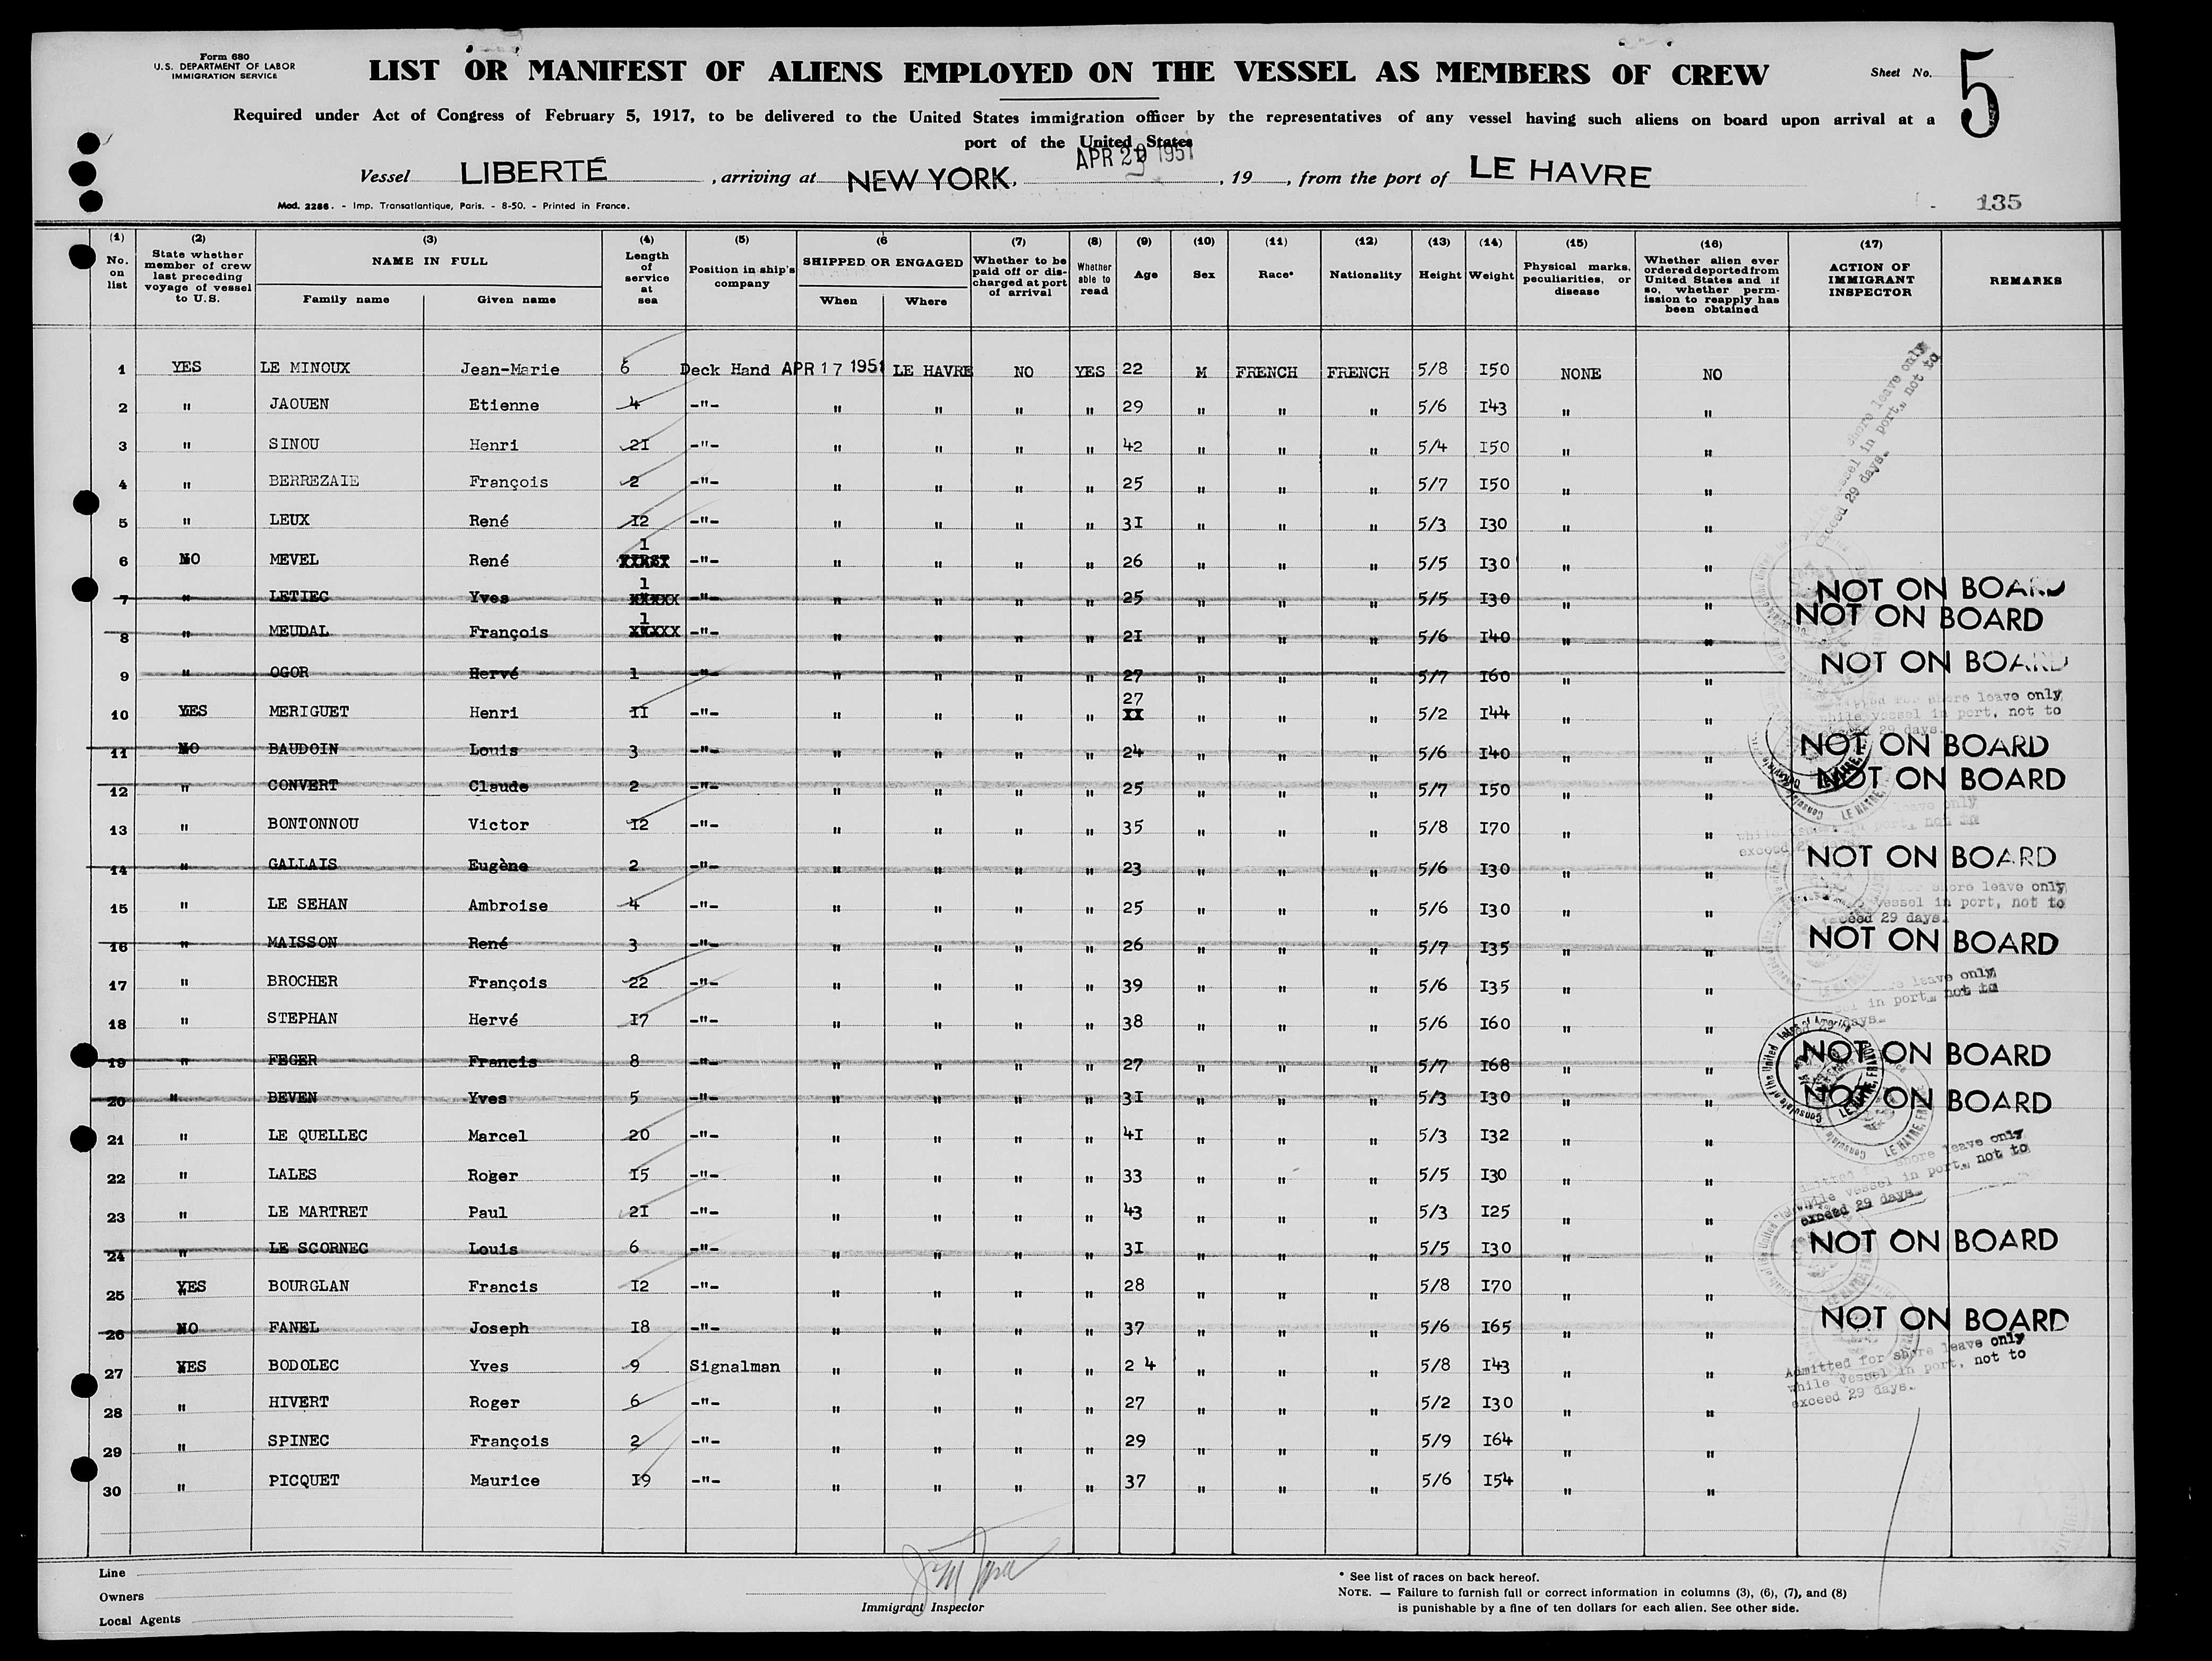 Form 680
U.S. DEPARTMENT OF LABOR
IMMIGRATION SERVICE
LIST OR MANIFEST OF ALIENS EMPLOYED ON THE VESSEL AS MEMBERS OF CREW
Sheet No. 5
Required under Act of Congress of February 5, 1917, to be delivered to the United States immigration officer by the representatives of any vessel having such aliens on board upon arrival at a
port of the United States
Vessel LIBERTÉ , arriving at NEW YORK, APR 1951 , 19 , from the port of LE HAVRE
Mod. 2286. - Imp. Transatlantique, Paris. - 8-50. - Printed in France.
135
(1) No. on list (2) State whether member of crew last preceding voyage of vessel to U.S. (3) NAME IN FULL Family name Given name (4) Length of service at sea (5) Position in ship's company (6 SHIPPED OR ENGAGED When Where (7) Whether to be paid off or discharged at port of arrival (8) Whether able to read (9) Age (10) Sex (11) Race* (12) Nationality (13) Height (14) Weight (15) Physical marks, peculiarities, or disease (16) Whether alien ever ordered deported from United States and if so, whether permission to reapply has been obtained (17) ACTION OF IMMIGRANT INSPECTOR REMARKS
1 YES LE MINOUX Jean-Marie 6 Deck Hand APR 17 1951 LE HAVRE NO YES 22 M FRENCH FRENCH 5/8 I50 NONE NO
2 " JAOUEN Etienne 4 -"- " " " " 29 " " " 5/6 I43 " "
3 " SINOU Henri 2I -"- " " " " 42 " " " 5/4 I50 " "
4 " BERREZAIE François 2 -"- " " " " 25 " " " 5/7 I50 " "
5 " LEUX René I2 -"- " " " " 3I " " " 5/3 I30 " "
6 NO MEVEL René 1 -"- " " " " 26 " " " 5/5 I30 " "
7 " LETIEC Yves 1 -"- " " " " 25 " " " 5/5 I30 " " NOT ON BOARD
8 " MEUDAL François 1 -"- " " " " 2I " " " 5/6 I40 " " NOT ON BOARD
9 " OGOR Hervé 1 -"- " " " " 27 " " " 5/7 I60 " " NOT ON BOARD
10 YES MERIGUET Henri II -"- " " " " 27 " " " 5/2 I44 " " shore leave only while vessel in port, not to 29 days.
11 NO BAUDOIN Louis 3 -"- " " " " 24 " " " 5/6 I40 " " NOT ON BOARD
12 " CONVERT Claude 2 -"- " " " " 25 " " " 5/7 I50 " " NOT ON BOARD
13 " BONTONNOU Victor I2 -"- " " " " 35 " " " 5/8 I70 " "
14 " GALLAIS Eugène 2 -"- " " " " 23 " " " 5/6 I30 " " NOT ON BOARD
15 " LE SEHAN Ambroise 4 -"- " " " " 25 " " " 5/6 I30 " " shore leave only vessel in port, not to exceed 29 days.
16 " MAISSON René 3 -"- " " " " 26 " " " 5/7 I35 " " NOT ON BOARD
17 " BROCHER François 22 -"- " " " " 39 " " " 5/6 I35 " " leave only in port, not to
18 " STEPHAN Hervé I7 -"- " " " " 38 " " " 5/6 I60 " " days.
19 " FEGER Francis 8 -"- " " " " 27 " " " 5/7 I68 " " NOT ON BOARD
20 " BEVEN Yves 5 -"- " " " " 3I " " " 5/3 I30 " " NOT ON BOARD
21 " LE QUELLEC Marcel 20 -"- " " " " 4I " " " 5/3 I32 " "
22 " LALES Roger I5 -"- " " " " 33 " " " 5/5 I30 " " Admitted shore leave only while vessel in port, not to
23 " LE MARTRET Paul 2I -"- " " " " 43 " " " 5/3 I25 " " exceed 29 days.
24 " LE SCORNEC Louis 6 -"- " " " " 3I " " " 5/5 I30 " " NOT ON BOARD
25 YES BOURGLAN Francis I2 -"- " " " " 28 " " " 5/8 I70 " "
26 NO FANEL Joseph I8 -"- " " " " 37 " " " 5/6 I65 " " NOT ON BOARD
27 YES BODOLEC Yves 9 Signalman " " " " 2 4 " " " 5/8 I43 " " Admitted for shore leave only while vessel in port, not to exceed 29 days.
28 " HIVERT Roger 6 -"- " " " " 27 " " " 5/2 I30 " "
29 " SPINEC François 2 -"- " " " " 29 " " " 5/9 I64 " "
30 " PICQUET Maurice I9 -"- " " " " 37 " " " 5/6 I54 " "
Line
Owners
Local Agents
Immigrant Inspector
* See list of races on back hereof.
NOTE. — Failure to furnish full or correct information in columns (3), (6), (7), and (8)
is punishable by a fine of ten dollars for each alien. See other side.